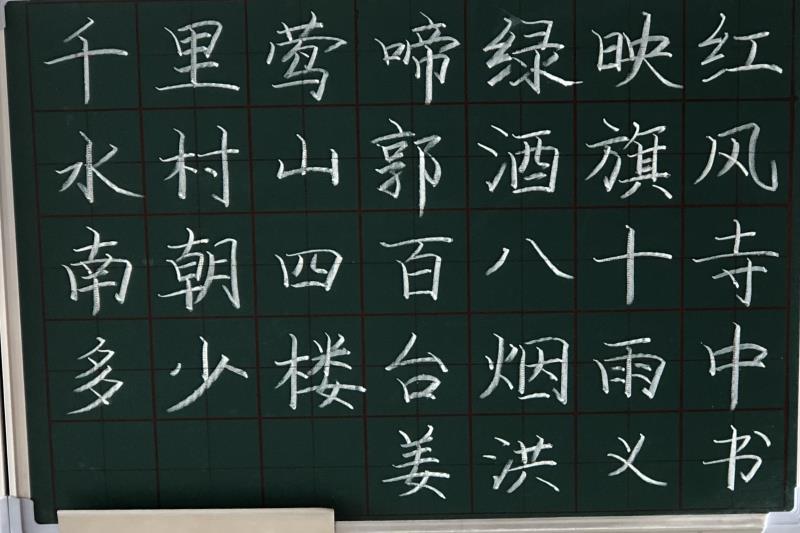 千里莺啼绿映红
水村山郭酒旗风
南朝四百八十寺
多少楼台烟雨中
姜洪义书